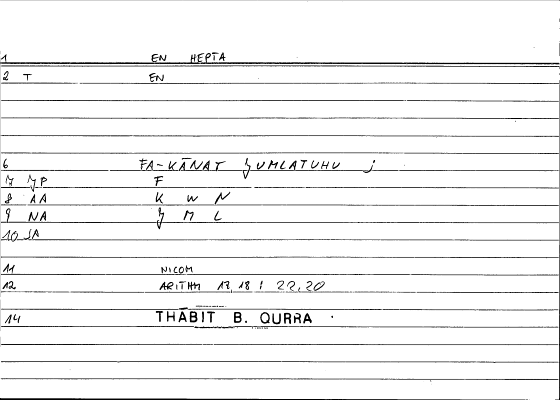 1 EN HEPTA
2 T EN
6 FA-KĀNAT ǮUMLATUHU j
7 ȜP F
8 AA K W N
9 NA Ȝ M L
10 SA
11 NICOM
12 ARITHM 13,18 ; 22,20
14 THĀBIT B. QURRA